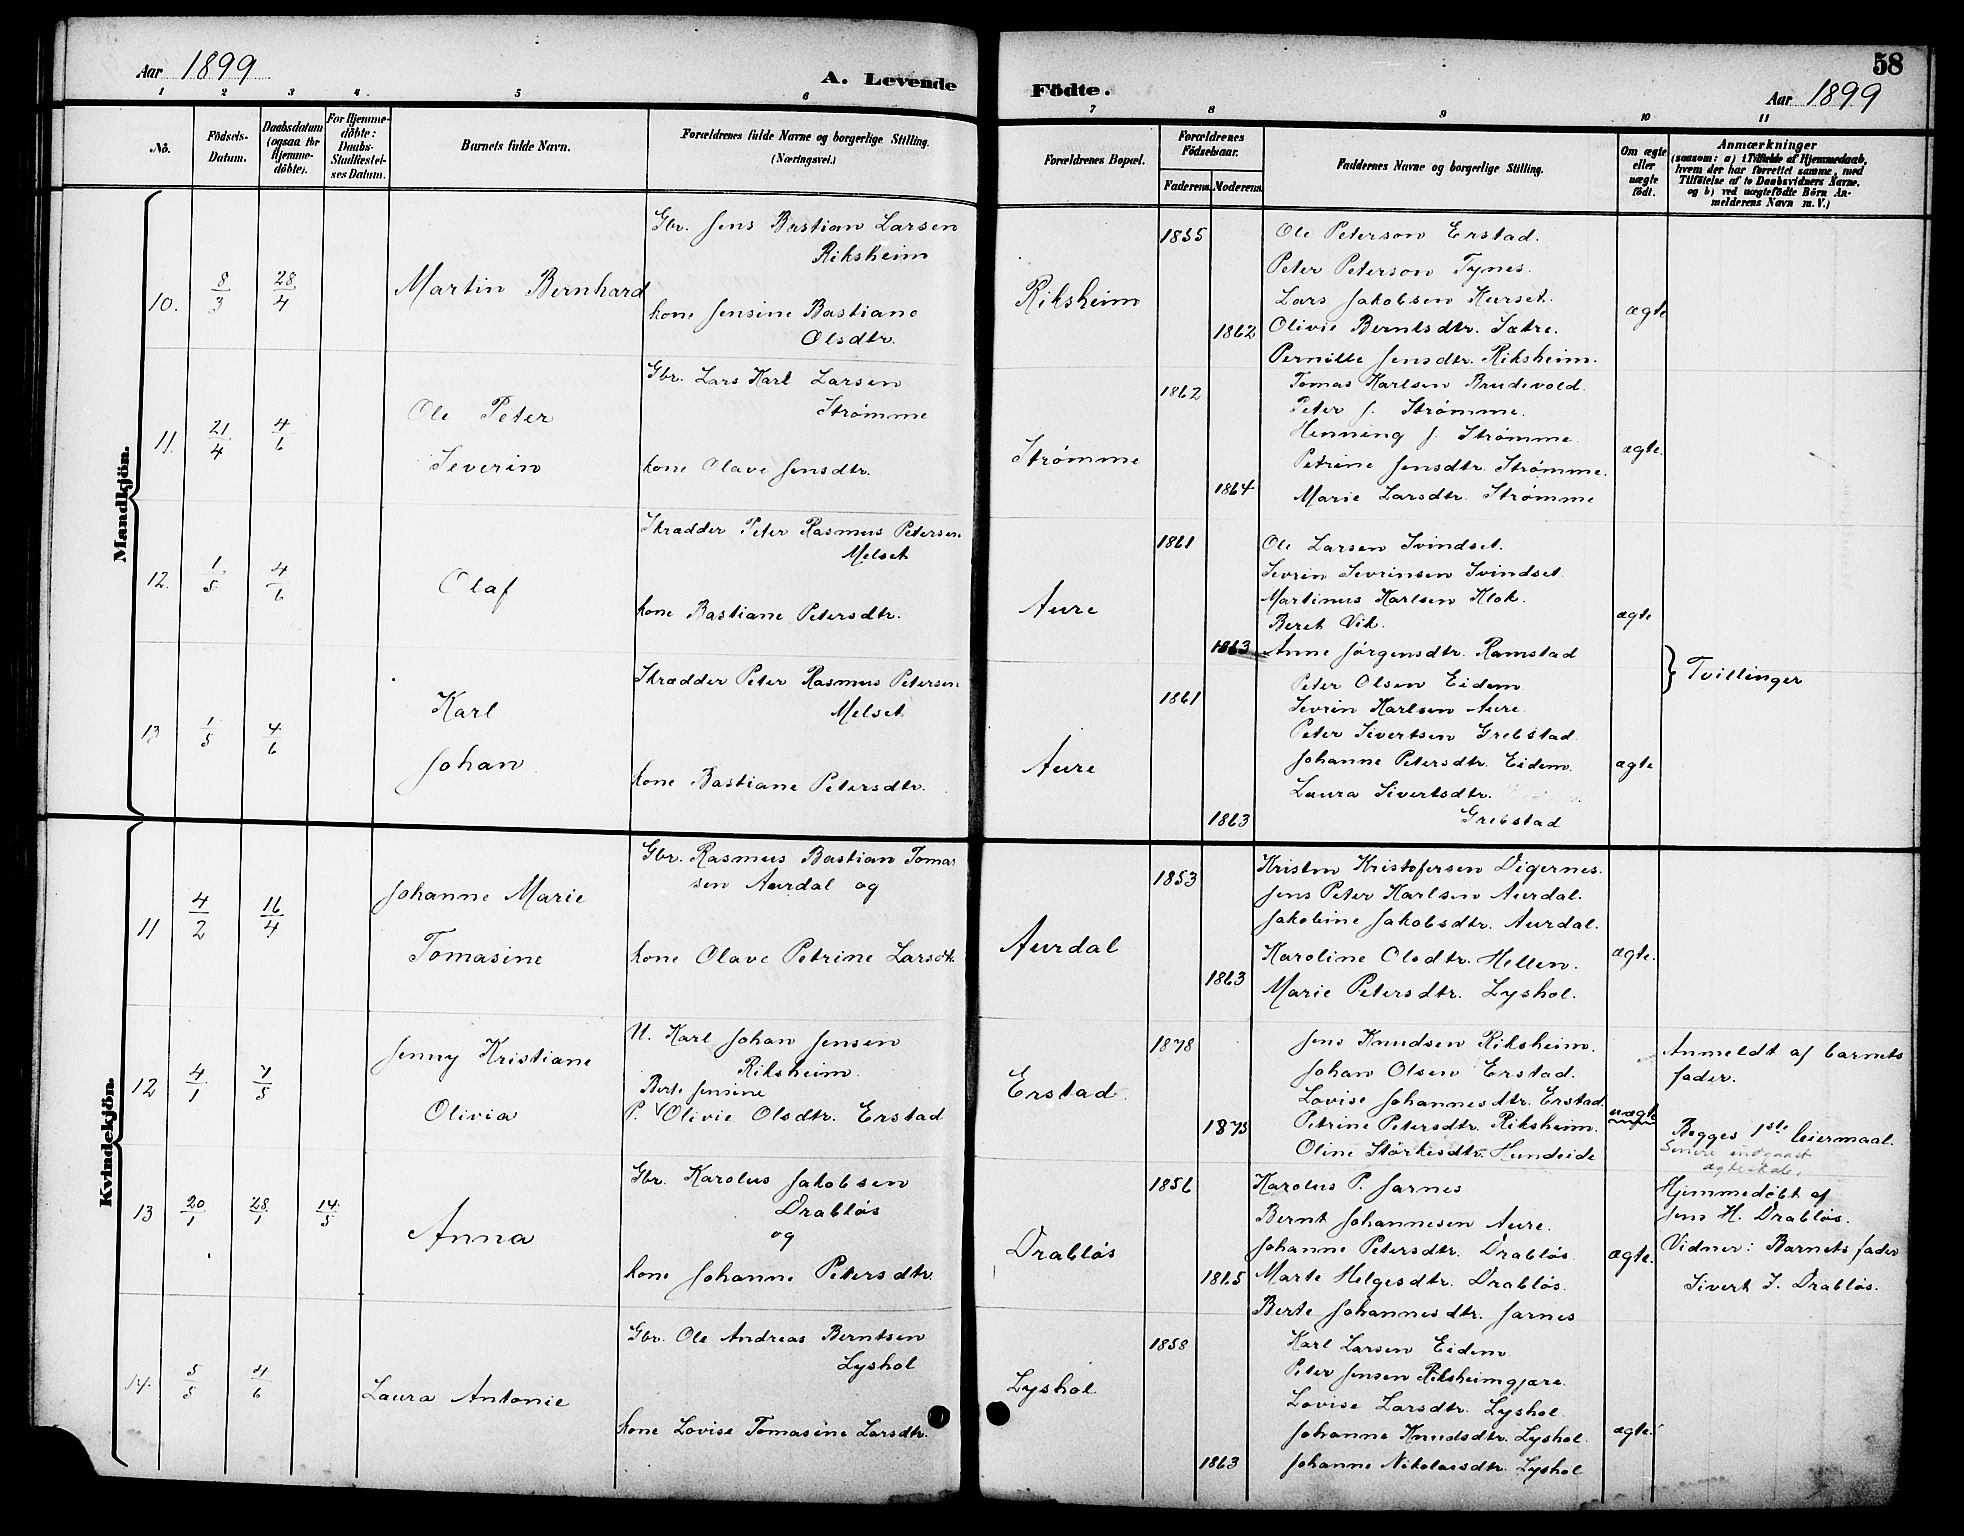 Aar 1899
A. Levende
1 2 3 4 5 6
No.
Födsels-
Datum.
Daabsdatum
(ogsaa for
Hjemme-
döbte).
For Hjemme-
döbte:
Daabs-
Stadfæstel-
ses Datum.
Barnets fulde Navn.
Forældrenes fulde Navne og borgerlige Stilling.
(Næringsvei.)
Mandkjön.
10. 8/3 28/4
Martin Bernhard
Gbr. Jens Bastian Larsen
Riksheim
kone Jensine Bastiane
Olsdtr.
11. 21/4 4/6
Ole Peter
Severin
Gbr. Lars Karl Larsen
Strømme
kone Olave Jensdtr.
12. 1/5 4/6
Olaf
Skrædder Peter Rasmus Petersen
Melset
kone Bastiane Petersdtr.
13 1/5 4/6
Karl
Johan
Skrædder Peter Rasmus Petersen
Melset
kone Bastiane Petersdtr.
Kvindekjön.
11 4/2 16/4
Johanne Marie
Tomasine
Gbr. Rasmus Bastian Tomas
sen Aurdal og
kone Olave Petrine Larsdtr.
12 4/1 7/5
Jenny Kristiane
Olivia
U. Karl Johan Jensen
Riksheim.
Berte Jensine
P. Olivie Olsdtr. Erstad
13 20/1 28/1 14/5
Anna
Gbr. Karolus Jakobsen
Drabløs
og
kone Johanne Petersdtr.
14. 5/5 4/6
Laura Antonie
Gbr. Ole Andreas Berntsen
Lyshol
kone Lovise Tomasine Larsdtr.
58
Födte.
Aar 1899
7 8 9 10 11
Forældrenes Bopæl.
Forældrenes
Födselsaar.
Faderens. Moderens.
Faddernes Navne og borgerlige Stilling.
Om ægte
eller
uægte
födt.
Anmærkninger
(saasom: a) i Tilfælde af Hjemmedaab,
hvem der har forrettet samme, med
Tilföielse af to Daabsvidners Navne,
og b) ved uægtefödte Börn An-
melderens Navn m. V.)
Riksheim
1855
1862
Ole Peterson Erstad.
Peter Peterson Tynes.
Lars Jakobsen Hurset.
Olivie Berntsdtr. Sætre.
Pernille Jensdtr. Riksheim.
ægte
Strømme
1862
1864
Tomas Karlsen Brudevold.
Peter J. Strømme.
Henning J. Strømme
Petrine Jensdtr. Strømme.
Marie Larsdtr. Strømme
ægte.
Aure
1861
1863
Ole Larsen Svindset.
Sevrin Sevrinsen Svindset
Martinus Karlsen Klok.
Beret Vik.
Anne Jørgensdtr. Ramstad
ægte
} Tvillinger
Aure
1861
1863
Peter Olsen Eidem
Sevrin Karlsen Aure.
Peter Sivertsen Grebstad.
Johanne Petersdtr. Eidem.
Laura Sivertsdtr.
Grebstad
ægte
Aurdal
1853
1863
Kristen Kristofersen Digernes.
Jens Peter Karlsen Aurdal.
Jakobine Jakobsdtr. Aurdal.
Karoline Olsdtr. Hellen.
Marie Petersdtr. Lyshol.
ægte.
Erstad
1878
1875
Jens Knudsen Riksheim.
Johan Olsen Erstad.
Lovise Johannesdtr. Erstad.
Petrine Petersdtr. Riksheim.
Oline Størkesdtr. Hundeide
uægte
Anmeldt af barnets
fader.
Begges 1ste leiermaal.
Senere indgaaet
ægteskab.
Drabløs
1856
1865
Karolus P. Jarnes
Bernt Johannesen Aure.
Johanne Petersdtr. Drabløs.
Marte Helgesdtr. Drabløs.
Berte Johannesdtr. Jarnes
ægte.
Hjemmedøbt af
Jens H. Drabløs.
Vidner: Barnets fader
Sivert J. Drabløs.
Lyshol
1858
1863
Karl Larsen Eidem
Peter Jensen Riksheimgjære.
Lovise Larsdtr. Lyshol.
Johanne Knudsdtr. Lyshol.
Johanne Nikolaisdtr. Lyshol
ægte.